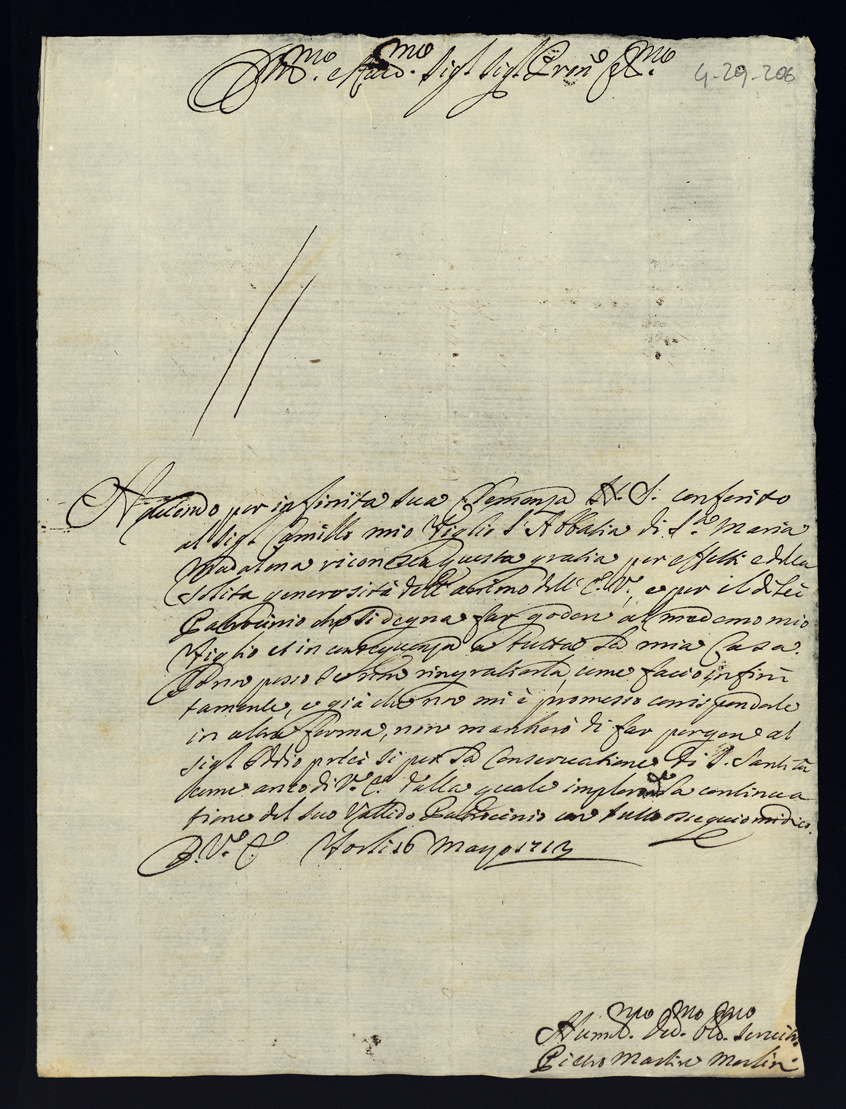 Ill.mo e Rev.mo Sig.r Sig.r Pron.e Col.mo
4-29-206
Havendo per infinita sua Clemenza N. S. conferito
al Sig.r Camillo mio Figlio l'Abbatia di S.ta Maria
Madalena riconosco questa gratia per effetti della
solita generosità dell'animo dell'E. V., e per il di Lei
Patrocinio che si degna far godere al medemo mio
Figlio et in consequenza a tutta la mia Casa.
Non posso se non ringratiarla, come faccio infini
tamente, e già che non mi è promesso corrispondere
in altra forma, non mancherò di far porgere al
Sig.r Iddio preci si per la Conservatione di S. Santità
come anco di V. E. dalla quale imploro la continua
tione del suo Vallido Patrocinio con tutto ossequio mi dico
D. V. E. Forlì 16 Mayo 1713
Humil.mo Dev.mo Obl.mo Servit.
Pietro Martire Merlin